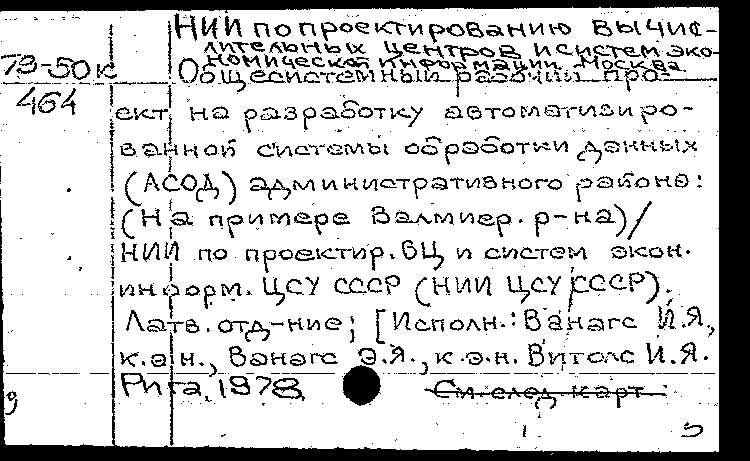 НИИ по проектированию вычис-
лительных центров и систем эко-
номической информации. Москва
79-50к Общесистемный рабочий про-
464 ект на разработку автоматизиро-
ванной системы обработки данных
(АСОД) административного района:
(На примере Валмиер. р-на)/
НИИ по проектир. ВЦ и систем экон.
информ. ЦСУ СССР (НИИ ЦСУ СССР).
Латв. отд-ние; [Исполн.: Ванагс И.Я.,
к.э.н., Ванагс Э.Я., к.э.н. Витолс И.Я.
Рига, 1978 См. след. карт.
9